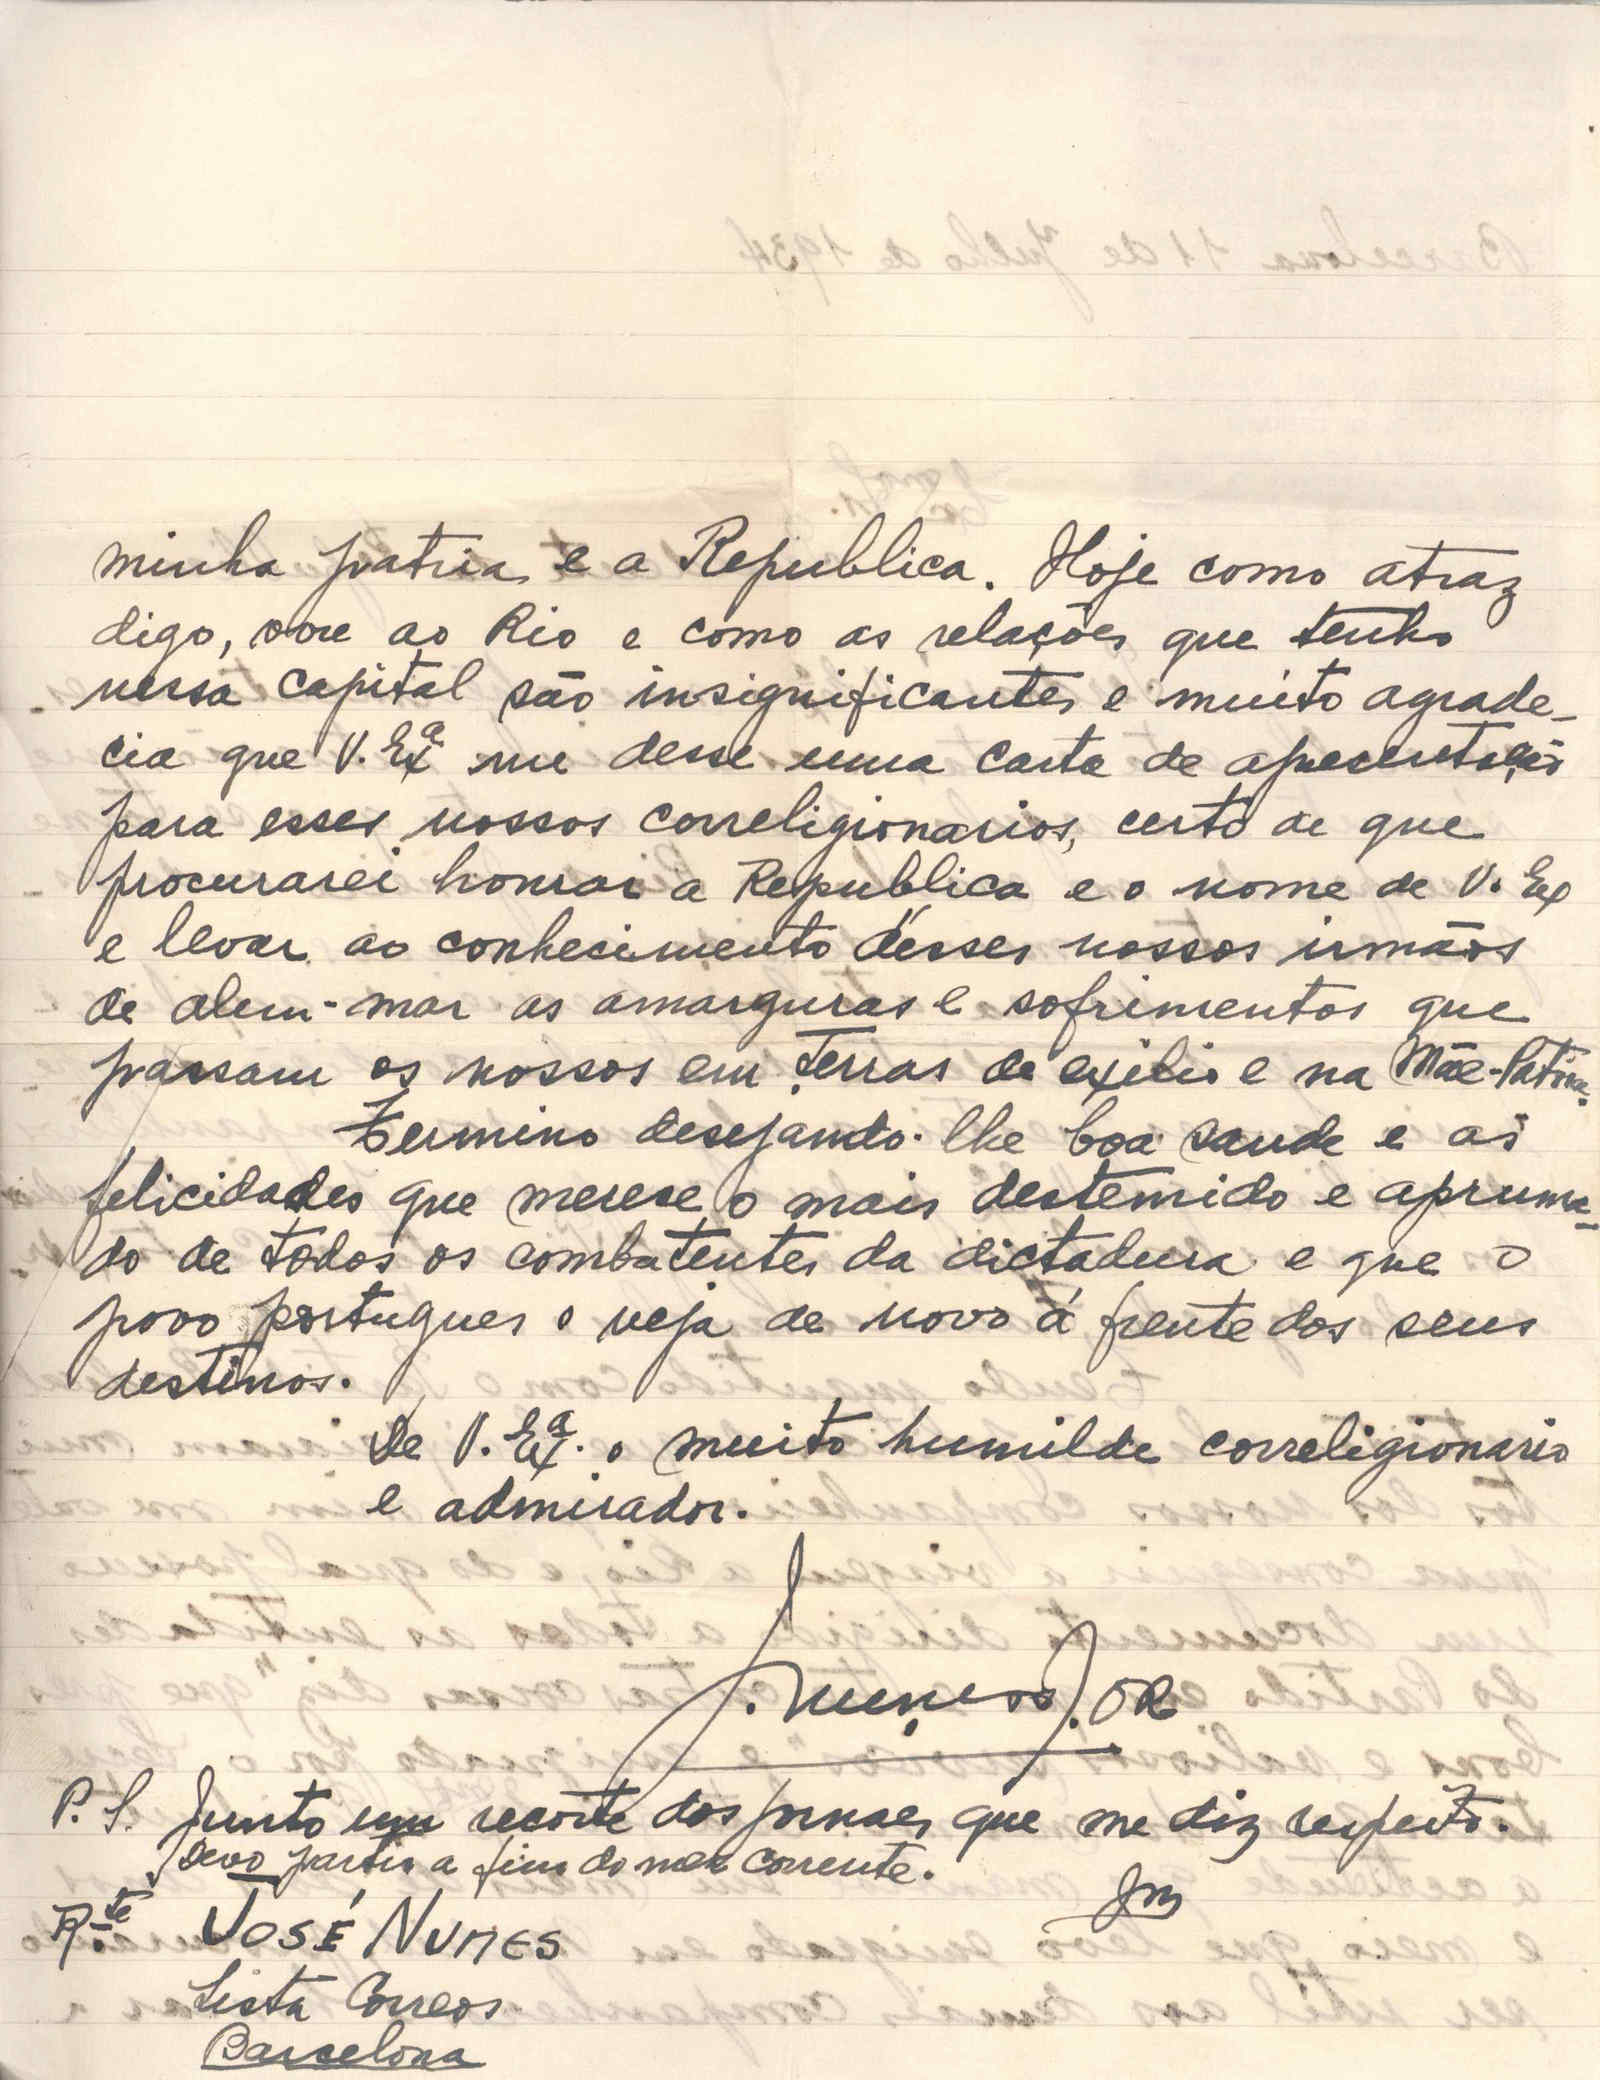 minha patria e a Republica. Hoje como atraz
digo, vou ao Rio e como as relações que tenho
nessa capital são insignificantes e muito agrade-
cia que V. Exª me desse uma carta de apresentação
para esses nossos correligionarios, certo de que
procurarei honrar a Republica e o nome de V. Ex
e levar ao conhecimento desses nossos irmãos
de alem-mar as amarguras e sofrimentos que
passam os nossos em terras de exilio e na Mãe-Patria.
Termino desejando-lhe boa saude e as
felicidades que merese o mais destemido e apruma-
do de todos os combatentes da dictadura e que o
povo portugues o veja de novo á frente dos seus
destinos.
De V. Exª. o muito humilde correligionario
e admirador.
P. S. Junto um recorte dos jornaes que me diz respeito.
Devo partir a fins do mez corrente.
JN
R.te JOSÉ NUNES
Lista Correos
Barcelona